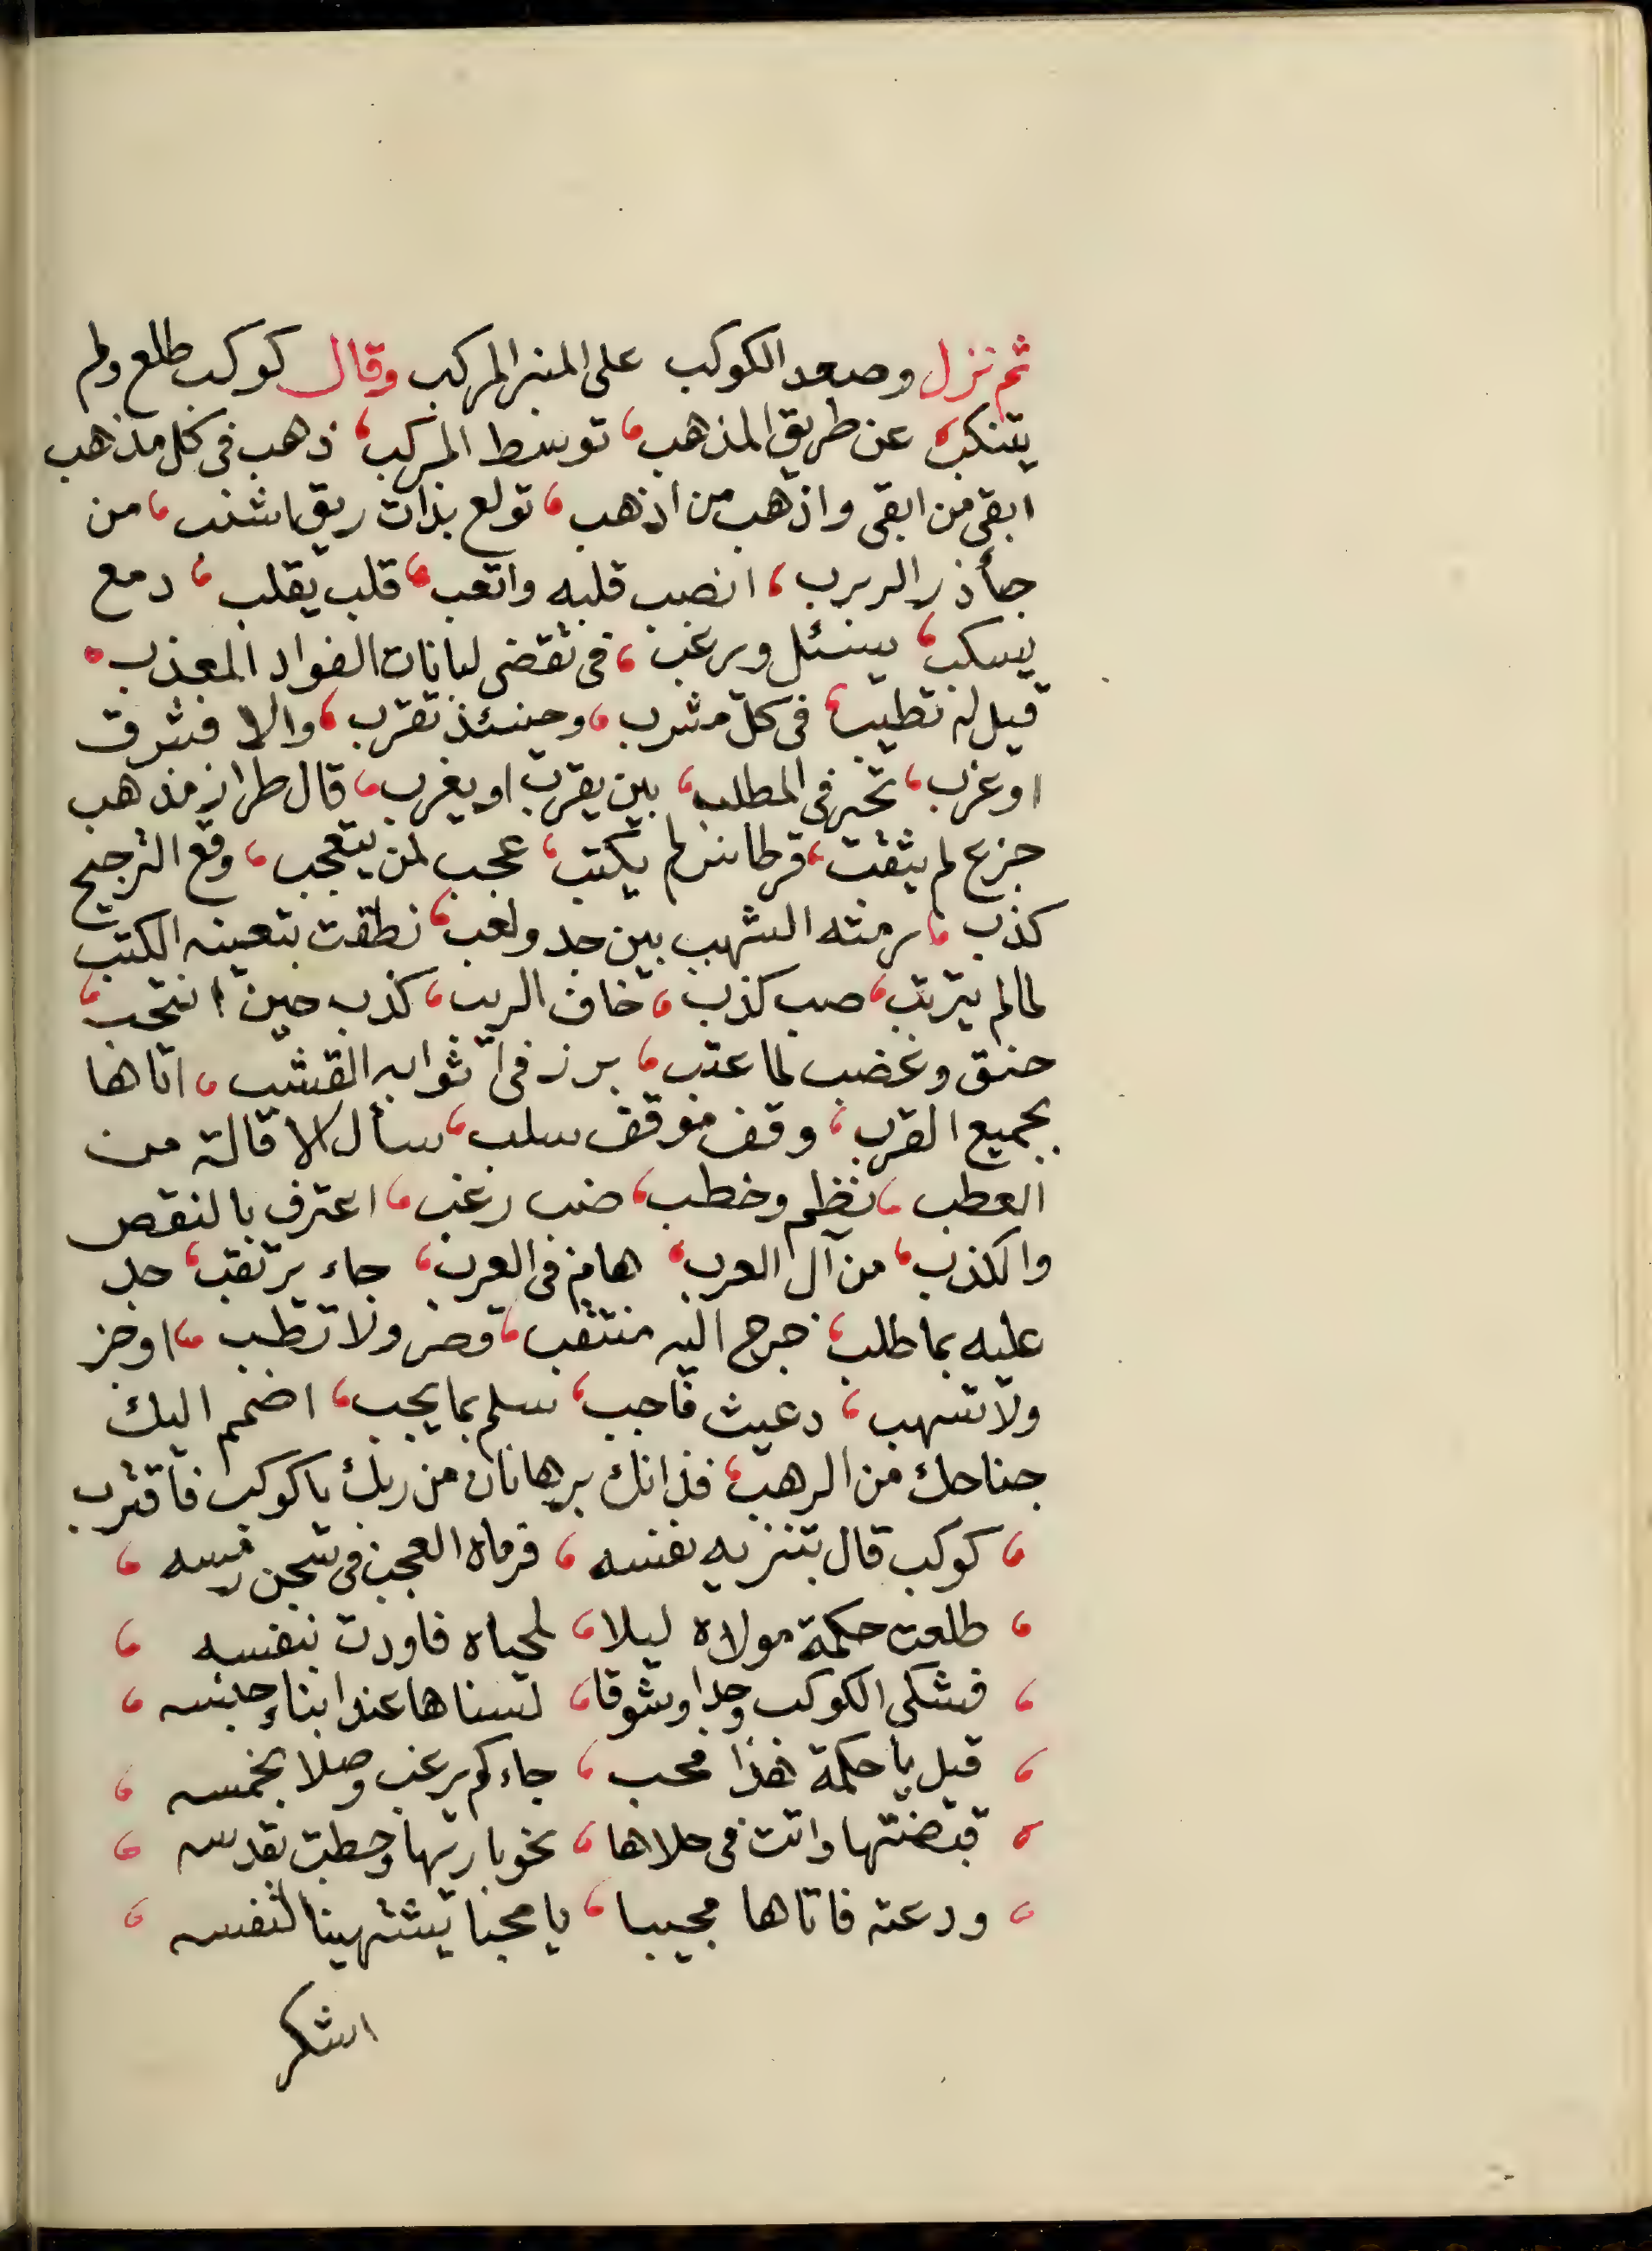 ثم نزل وصعد الكوكب على المنبر المركب وقال كوكب طلع ولم
يتنكب عن طريق المذهب، توسط المركب، ذهب في كل مذهب
ابقى من ابقى واذهب من اذهب، تولع بذات ريق اشنب، من
جأذر الربرب، انصب قلبه واتعب، قلب يقلب، دمع
يسكب، يسئل ويرغب، في تقضى لبانات الفواد المعذب.
قيل له تطيب، في كل مشرب، وحينئذ تقرب، والا فشرق
او غرب، تحير في المطلب، بين يقرب او يغرب، قال طراز مذهب
جزع لم يثقب، قرطاس لم يكتب، عجب لمن يتعجب، وقع الترجيح
كذب، رمته الشهب بين جد ولعب، نطقت بتعينه الكتب
لما لم يترتب، صب كذب، خاف الريب، كذب حين انتحب،
حنق وغضب لما عتب، برز في اثوابه القشب، اتاها
بجميع القرب، وقف موقف سلب، سأل الاقالة من
العطب، نظم وخطب، صب رغب، اعترف بالنقص
والكذب، من آل العرب، هام في العرب، جاء يرتقب، جد
عليه بما طلب، خرج اليه منتقب، قصر ولا تطب، اوجز
ولا تسهب، دعيت فاجب، سلم بما يجب، اضمم اليك
جناحك من الرهب، فذانك برهانان من ربك يا كوكب فاقترب
، كوكب قال بتنزيه نفسه، فرماه العجب في سجن رمسه،
، طلعت حكمة مولاه ليلا، لمحياه فاودت بنفسه،
، فشكى الكوكب وجدا وشوقا، لسناها عند ابناء جنسه،
، قيل يا حكمة هذا محب، جاءكم يرغب وصلا بخمسه،
، قبضتها واتت في حلاها، نحو باريها وحطت بقدسه،
، ودعته فاتاها مجيبا، يا محبا يشتهينا لنفسه،
اشكر